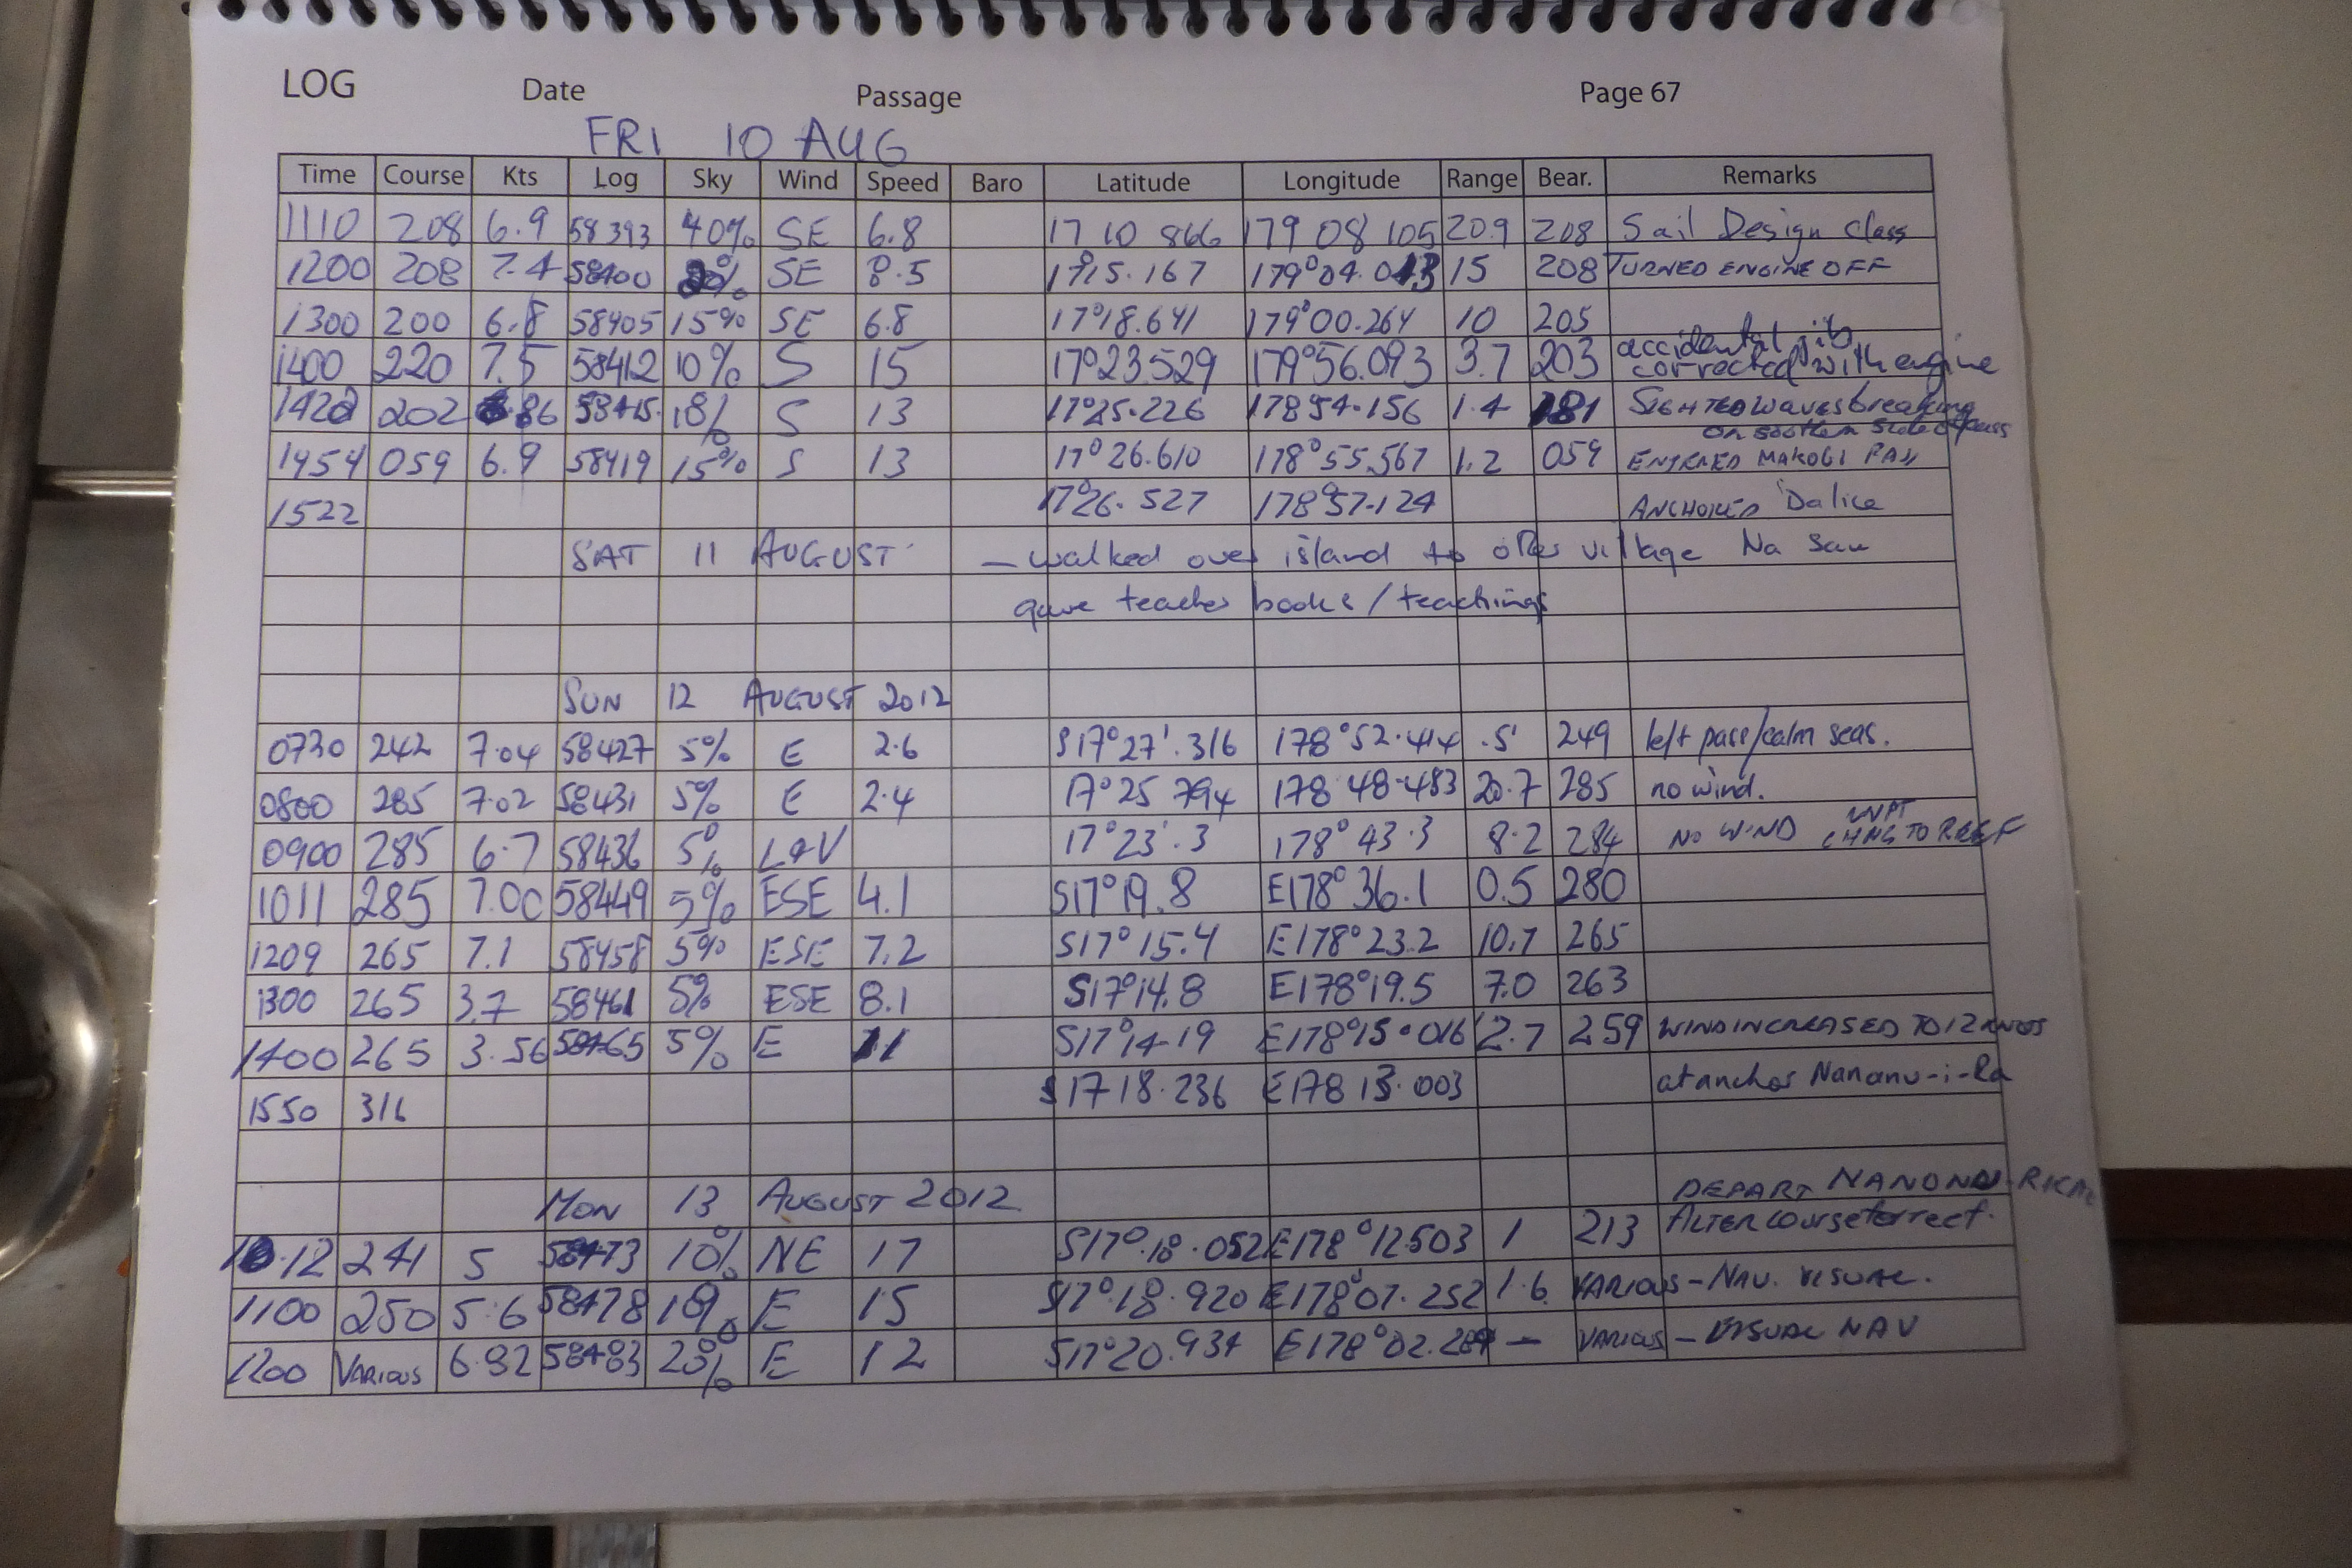 LOG Date Passage Page 67
FRI 10 AUG
Time Course Kts Log Sky Wind Speed Baro Latitude Longitude Range Bear. Remarks
1110 208 6.9 58393 40% SE 6.8 17 10 866 179 08 105 20.9 208 Sail Design Class
1200 208 7.4 58400 SE 8.5 17°15.167 15 208 TURNED ENGINE OFF
1300 200 6.8 58405 15% SE 6.8 17°18.641 179°00.264 10 205
accidental jib
1400 220 7.5 58412 10% S 15 17°23529 179°56.093 3.7 203 corrected with engine
202 58415 S 13 17°25.226 17854.156 1.4 181 SIGHTED waves breaking
on southern side of pass
1454 059 6.9 58419 15% S 13 17°26.610 178°55.567 1.2 059 ENTERED MAKOGI PASS
1522 17°26.527 178°57.124 ANCHORED Dalice
SAT 11 AUGUST - walked over island to other village Na Sau
gave teacher books/teachings
SUN 12 AUGUST 2012
0730 242 7.04 58427 5% E 2.6 S17°27'.316 178°52.414 .5' 249 left pass/calm seas.
0800 285 7.02 58431 5% E 2.4 17°25 794 178 48.483 20.7 285 no wind.
WPT
0900 285 6.7 58436 5% L&V 17°23'.3 178°43.3 8.2 284 NO WIND CHNG TO REEF
1011 285 7.00 58449 5% ESE 4.1 S17°19.8 E178°36.1 0.5 280
1209 265 7.1 58458 5% ESE 7.2 S17°15.4 E178°23.2 10.7 265
1300 265 3.7 58461 5% ESE 8.1 S17°14.8 E178°19.5 7.0 263
1400 265 3.56 58465 5% E 11 S17°14.19 E178°15.016 2.7 259 WIND INCREASED TO 12 KNOTS
1550 316 S17 18.236 E178 13.003 at anchor Nananu-i-Ra
MON 13 AUGUST 2012 DEPART
10.12 241 5 58473 10% NE 17 S17°.18.052 E178°12503 1 213 ALTER course for reef.
1100 250 5.6 58478 10% E 15 S17°18.920 E178°07.252 1.6 VARIOUS - NAV. VISUAL.
1200 VARIOUS 6.92 58483 20% E 12 S17°20.934 — VARIOUS - VISUAL NAV